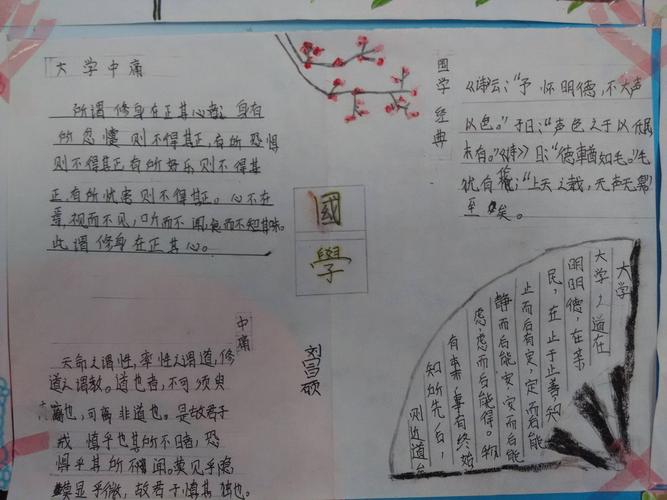 大学中痛
所谓修身在正其心者：身有
所忿懥则不得其正，有所恐惧
则不得其正有所好乐则不得其
正，有所忧患则不得其正。心不在
焉，视而不见，听而不闻，食而不知其味。
此谓修身在正其心。
国学经典
《诗云：“予怀明德，不大声
以色。”子曰：“声色之于以化民
末有。”《诗》曰：“德輶如毛。”毛
犹有伦；“上天之载，无声无臭”
至矣。
國
學
中痛
天命之谓性，率性之谓道，修
道之谓教。道也者，不可须臾
离也，可离非道也。是故君子
戒慎乎其所不睹，恐
惧乎其所不闻。莫见乎隐
莫显乎微，故君子慎其独也。
刘昌硕
大学
大学之道在
明明德，在亲
民，在止于止善，知
止而后有定，定而后能
静而后能安，安而后能
虑，虑而后能得。物
有本末，事有终始
知所先后，
则近道